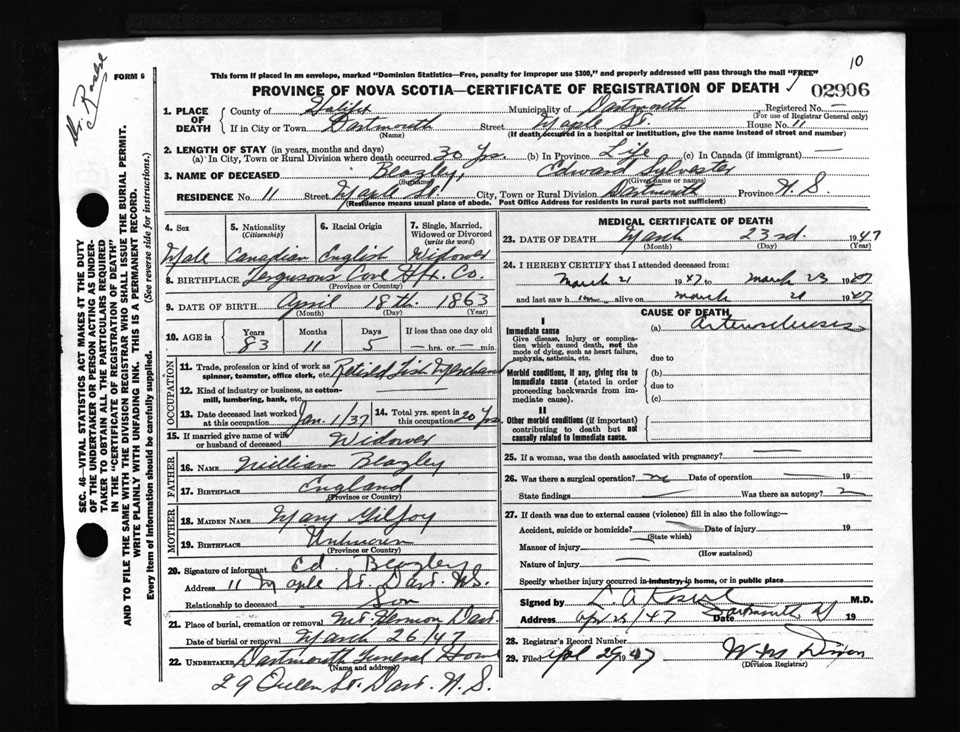 10
Dr. Rosere
FORM 6
This form if placed in an envelope, marked "Dominion Statistics—Free, penalty for improper use $300," and properly addressed will pass through the mail "FREE"
PROVINCE OF NOVA SCOTIA—CERTIFICATE OF REGISTRATION OF DEATH ✓ 02906
1. PLACE OF DEATH County of Halifax Municipality of Dartmouth Registered No. —
(For use of Registrar General only)
If in City or Town Dartmouth Street Maple St. House No. 11
(Name) (If death occurred in a hospital or institution, give the name instead of street and number)
2. LENGTH OF STAY (in years, months and days)
(a) In City, Town or Rural Division where death occurred 30 Yrs. (b) In Province Life (c) In Canada (if immigrant) —
3. NAME OF DECEASED Beazley, Edward Sylvester
(Surname) (Given name or names)
RESIDENCE No. 11 Street Maple St. City, Town or Rural Division Dartmouth Province N.S.
(Residence means usual place of abode. Post Office Address for residents in rural parts not sufficient)
4. Sex 5. Nationality (Citizenship) 6. Racial Origin 7. Single, Married, Widowed or Divorced (write the word)
Male Canadian English Widower
8. BIRTHPLACE Fergusons Cove Hfx. Co.
(Province or Country)
9. DATE OF BIRTH April 18th. 1863
(Month) (Day) (Year)
10. AGE in Years Months Days If less than one day old
83 11 5 — hrs. or — min.
OCCUPATION
11. Trade, profession or kind of work as spinner, teamster, office clerk, etc. Retired Fish Merchant
12. Kind of industry or business, as cotton-mill, lumbering, bank, etc.
13. Date deceased last worked at this occupation Jan. 1/37 14. Total yrs. spent in this occupation 20 Yrs.
15. If married give name of wife or husband of deceased Widower
FATHER
16. NAME William Beazley
17. BIRTHPLACE England
(Province or Country)
MOTHER
18. MAIDEN NAME Mary Gilfoy
19. BIRTHPLACE Unknown
(Province or Country)
20. Signature of informant Ed. Beazley
Address 11 Maple St. Dart. N.S.
Relationship to deceased Son
21. Place of burial, cremation or removal Mt. Hermon Dart.
Date of burial or removal March 26/47
22. UNDERTAKER Dartmouth Funeral Home
(Name and address)
29 Queen St. Dart. N.S.
MEDICAL CERTIFICATE OF DEATH
23. DATE OF DEATH March 23rd. 1947
(Month) (Day) (Year)
24. I HEREBY CERTIFY that I attended deceased from:
March 21 1947 to March 23 1947
and last saw him alive on March 21 1947
CAUSE OF DEATH
I
Immediate cause (a) Arteriosclerosis
Give disease, injury or complication which caused death, not the mode of dying, such as heart failure, asphyxia, asthenia, etc.
due to
Morbid conditions, if any, giving rise to immediate cause (stated in order proceeding backwards from immediate cause). (b)
due to
(c)
II
Other morbid conditions (if important) contributing to death but not causally related to immediate cause.
25. If a woman, was the death associated with pregnancy? —
26. Was there a surgical operation? no Date of operation — 19
State findings — Was there an autopsy?
27. If death was due to external causes (violence) fill in also the following:—
Accident, suicide or homicide? — Date of injury 19
(State which)
Manner of injury —
(How sustained)
Nature of injury —
Specify whether injury occurred in industry, in home, or in public place
Signed by M.D.
Address Apr 25/47 Date Dartmouth 19
28. Registrar's Record Number
29. Filed Apl 29 1947
(Division Registrar)
SEC. 46—VITAL STATISTICS ACT MAKES IT THE DUTY
OF THE UNDERTAKER OR PERSON ACTING AS UNDER-
TAKER TO OBTAIN ALL THE PARTICULARS REQUIRED
IN THE "CERTIFICATE OF REGISTRATION OF DEATH"
AND TO FILE THE SAME WITH THE DIVISION REGISTRAR WHO SHALL ISSUE THE BURIAL PERMIT.
WRITE PLAINLY WITH UNFADING INK. THIS IS A PERMANENT RECORD.
Every item of information should be carefully supplied. (See reverse side for instructions.)